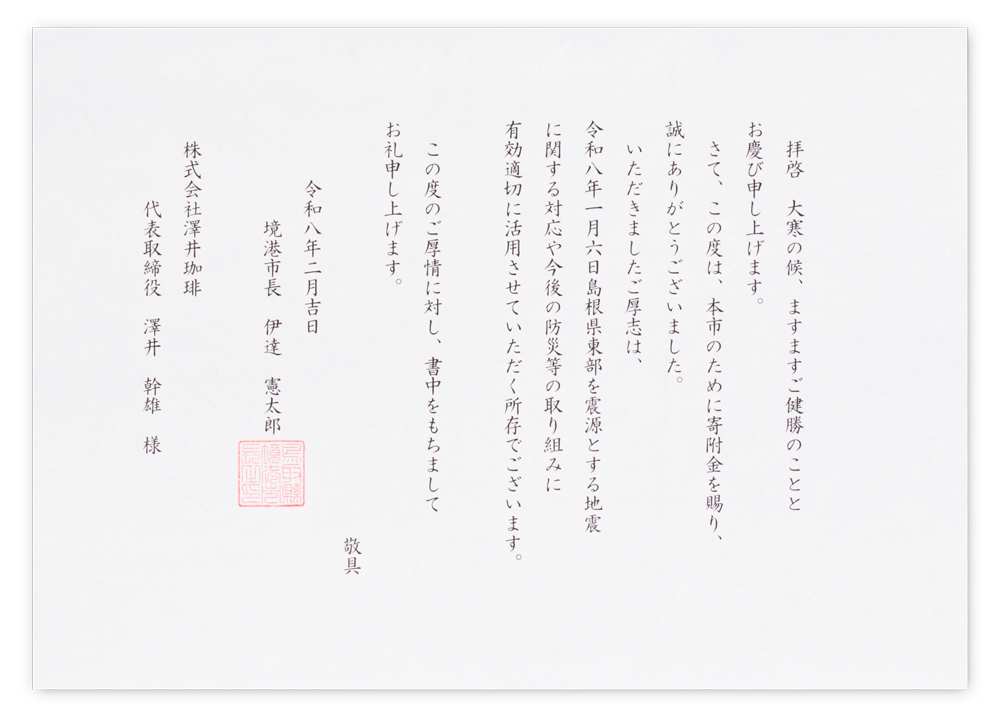 拝啓　大寒の候、ますますご健勝のことと
お慶び申し上げます。
さて、この度は、本市のために寄附金を賜り、
誠にありがとうございました。
いただきましたご厚志は、
令和八年一月六日島根県東部を震源とする地震
に関する対応や今後の防災等の取り組みに
有効適切に活用させていただく所存でございます。
この度のご厚情に対し、書中をもちまして
お礼申し上げます。
敬具
令和八年二月吉日
境港市長　伊達　憲太郎
株式会社澤井珈琲
代表取締役　澤井　幹雄　様